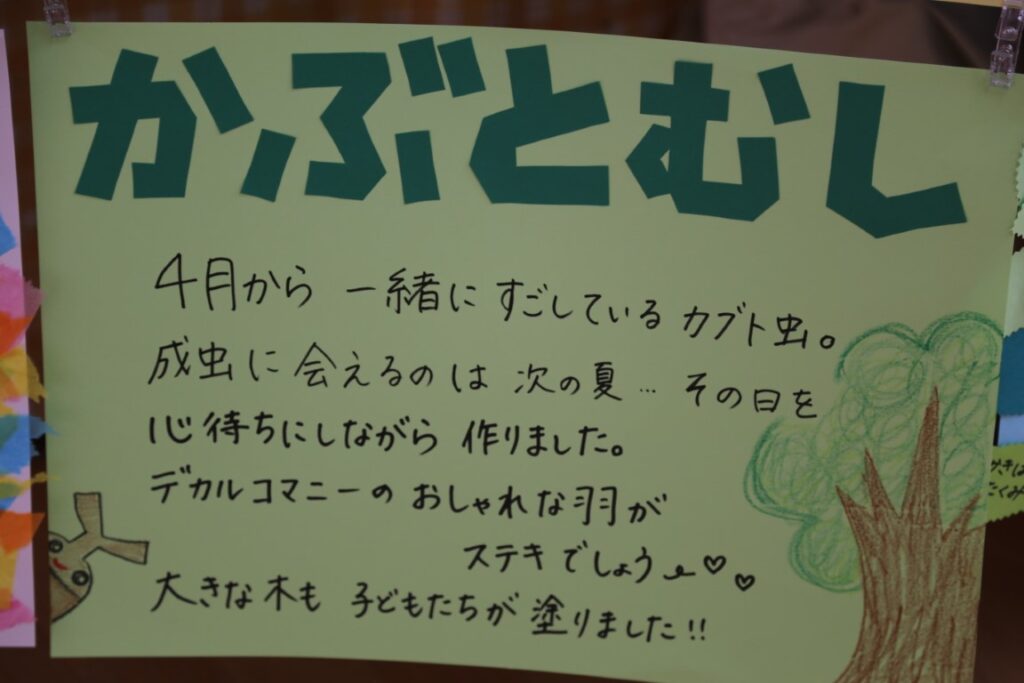 かぶとむし
4月から 一緒に すごしている カブト虫。
成虫に 会えるのは 次の夏… その日を
心待ちにしながら 作りました。
デカルコマニーの おしゃれな羽が
ステキでしょう♡♡
大きな木も 子どもたちが 塗りました!!